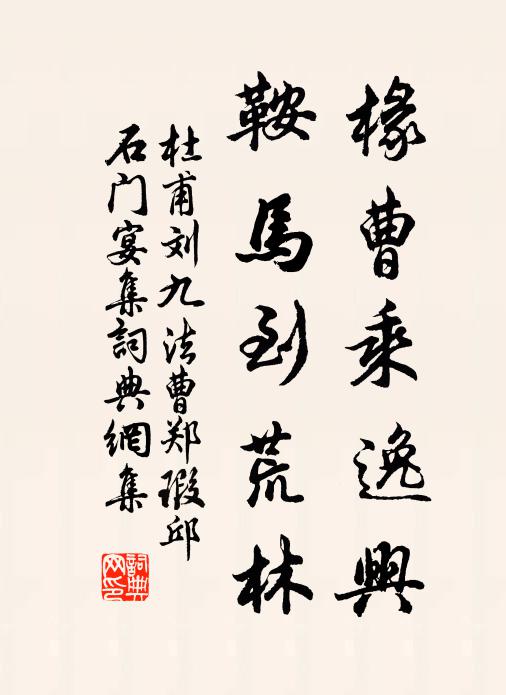 椽曹乘逸興
鞍馬到荒林
杜甫刘九法曹郑瑕邱
石门宴集詞典網集
詞典網印